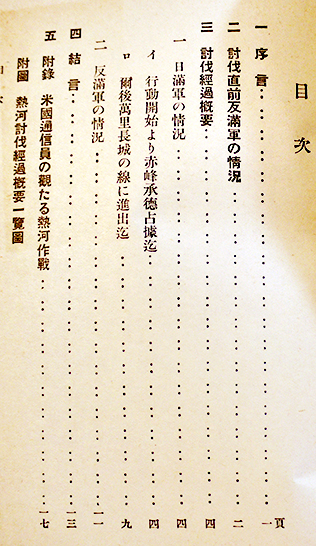 目次
頁
一 序言 一
二 討伐直前反滿軍の情況 二
三 討伐經過概要 四
一 日滿軍の情況 四
イ 行動開始より赤峰承德占據迄 四
ロ 爾後萬里長城の線に進出迄 九
二 反滿軍の情況 一一
四 結言 一三
五 附錄 米國通信員の觀たる熱河作戰 一七
附圖 熱河討伐經過概要一覽圖